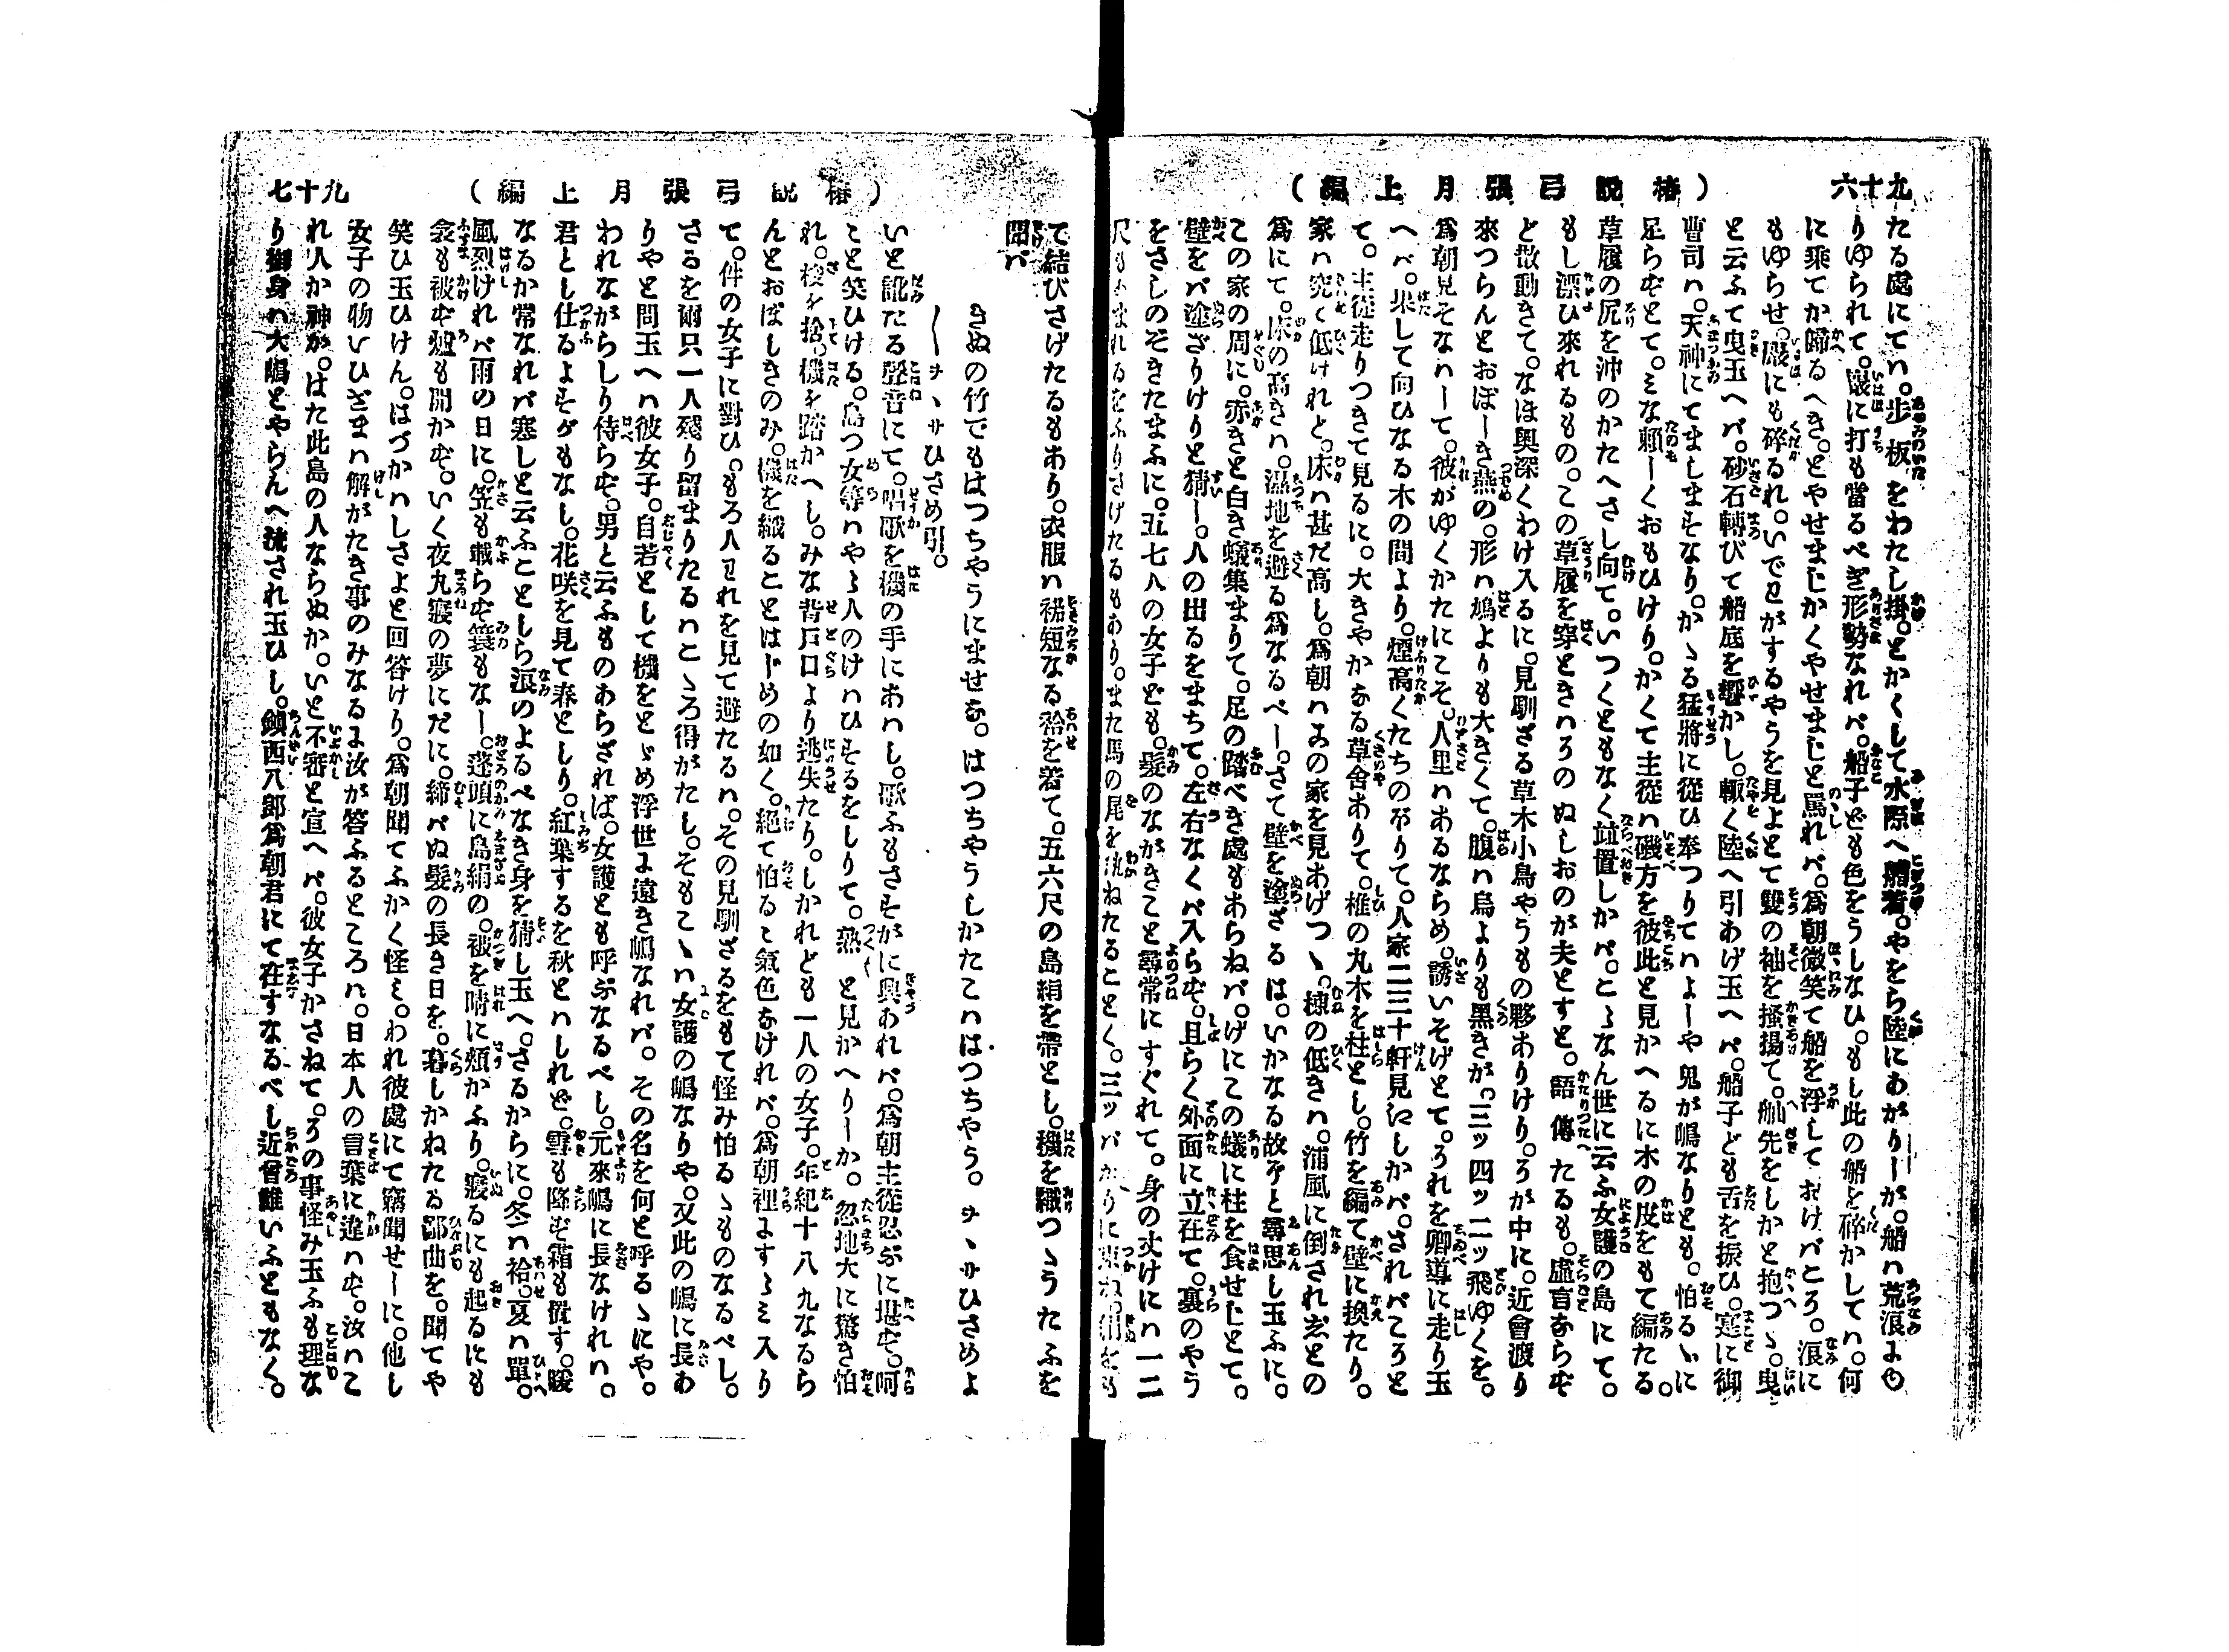 九十六
（椿説弓張月上編）
たる處にてハ。歩板をわたし掛。とかくして水際へ船着。やをら陸にあがりしが。船ハ荒浪よ
りゆられて。巌に打も當るべき形勢なれバ。船子ども色をうしなひ。もし此の船を碎かしてハ。何
に乘てか歸るへき。とやせましかくやせましと罵れバ。爲朝微笑て船を浮しておけバころ。浪に
もゆらせ。巌にも碎るれ。いで𛄋がするやうを見よとて雙の袖を掻揚て。舳先をしかと抱つゝ。曳
と云ふて曳玉へバ。砂石轉びて船底を響かし。輙く陸へ引あげ玉へバ。船子ども舌を振ひ。寔に御
曹司ハ。天神にてましますなり。かゝる猛將に從ひ奉つりてハよしや鬼が嶋なりとも。怕るゝに
足らずとて。みな頼しくおもひけり。かくて主從ハ磯方を彼此と見かへるに木の皮をもて編たる。
草履の尻を沖のかたへさし向て。いつくともなく竝置しかバ。こゝなん世に云ふ女護の島にて。
もし漂ひ來れるもの。この草履を穿ときハろのぬしおのが夫とすと。語傳たるも。虚言ならず
と散動きて。なほ奥深くわけ入るに。見馴ざる草木小鳥やうもの夥ありけり。ろが中に。近會渡り
來つらんとおぼしき燕の。形ハ鳩よりも大きくて。腹ハ鳥よりも黒きが。三ッ四ッ二ッ飛ゆくを。
爲朝見そなハして。彼がゆくかたにこそ。人里ハあるならめ。誘いそげとて。ろれを郷導に走り玉
へバ。果して向ひなる木の間より。煙高くたちのぼりて。人家二三十軒見にしかバ。されバころと
て。主從走りつきて見るに。大きやかなる草舍ありて。椎の丸木を柱とし。竹を編て壁に換たり。
家ハ究て低けれと。床ハ甚だ高し。爲朝ハよの家を見あげつゝ。棟の低きハ。浦風に倒されざとの
爲にて。床の高きハ。濕地を避る爲なるべし。さて壁を塗ざるは。いかなる故ぞと尋思し玉ふに。
この家の周に。赤きと白き蟻集まりて。足の踏べき處もあらねバ。げにこの蟻に柱を食せじとて。
壁をバ塗ざりけりと猜し。人の出るをまちて。左右なくバ入らず。且らく外面に立在て。裏のやう
をさしのぞきたまふに。五七人の女子ども。髮のながきこと尋常にすぐれて。身の丈けにハ一二
尺もあまれるをふりさげたるもあり。また馬の尾を
て結びさげたるもあり。衣服ハ裾短なる袷を着て。五六尺の島絹を帶とし。機を織つゝうたふを
聞バ
きぬの竹でもはつちやうにませな。はつちやうしかたこハはつちやう。ヲヽサひさめよ
〳〵ヲヽサひさめ引。
いと訛たる聲音にて。唱歌を機の手にあハし。歌ふもさすがに興あれバ。爲朝主從忍ぶに堪ず。呵
こと笑ひける。島つ女等ハやゝ人のけハひするをしりて。熟〳〵と見かへりしか。忽地大に驚き怕
れ。梭を捨。機を踏かへし。みな背戸口より逃失たり。しかれども一人の女子。年紀十八九なるら
んとおぼしきのみ。機を織ることはじめの如く。絶て怕るゝ氣色なけれバ。爲朝裡よすゝみ入り
て。件の女子に對ひ。もろ人𛄋れを見て避たるハ。その見馴ざるをもて怪み怕るゝものなるべし。
さるを爾只一人殘り留まりたるハこゝろ得がたし。そもこゝハ女護の嶋なりや。又此の嶋に長あ
りやと問玉へハ彼女子。自若として機をとゞめ浮世よ遠き嶋なれバ。その名を何と呼るゝにや。
われながらしり侍らず。男と云ふものあらざれば。女護とも呼ぶなるべし。元來嶋に長なけれハ。
君とし仕るよすがもなし。花咲を見て春としり。紅葉するを秋とハしれど。雪も降ず霜も置す。暖
なるか常なれバ寒しと云ふことしら浪のよるべなき身を猜し玉へ。さるからに。冬ハ袷。夏ハ單。
風烈けれバ雨の日に。笠も戴らず簑もなし。蓬頭に島絹の。被を晴に頬かふり。寢るにも起るにも
衾も被ず爐も開かず。いく夜丸寢の夢にだに。締バぬ髮の長き日を。暮しかねたる鄙曲を。聞てや
笑ひ玉ひけん。はづかハしさよと回答けり。爲朝聞てふかく怪み。われ彼處にて竊聞せしに。他し
女子の物いひざまハ解がたき事のみなるよ汝が答ふるところハ。日本人の言葉に違ハず。汝ハこ
れ人か神か。はた此島の人ならぬか。いと不審と宣へバ。彼女子かさねて。ろの事怪み玉ふも理な
り御身ハ大嶋とやらんへ流され玉ひし。鎭西八郎爲朝君にて在すなるべし近曾誰いふともなく。
（椿説弓張月上編）
九十七